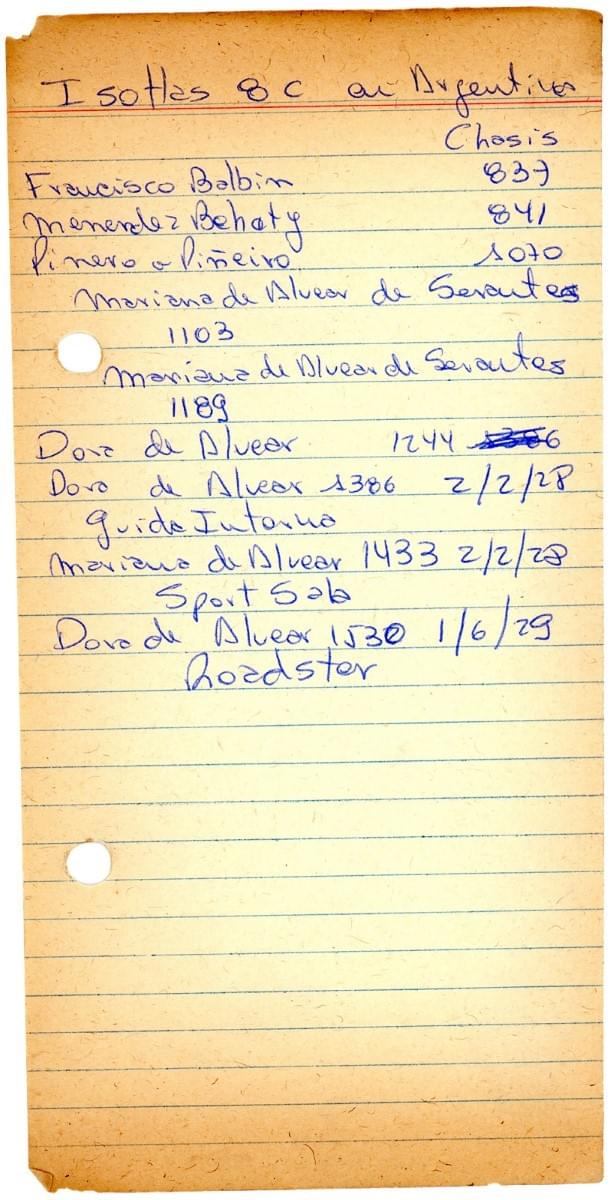 Isottas 8C en Argentina
Chasis
Francisco Balbin 837
Menendez Behety 841
Pinero o Piñeiro 1070
Mariana de Alvear de Serantes
1103
Mariana de Alvear de Serantes
1189
Dora de Alvear 1244
Dora de Alvear 1386 2/2/28
Guida Interna
Mariana de Alvear 1433 2/2/28
Sport Sala
Dora de Alvear 1530 1/6/29
Roadster